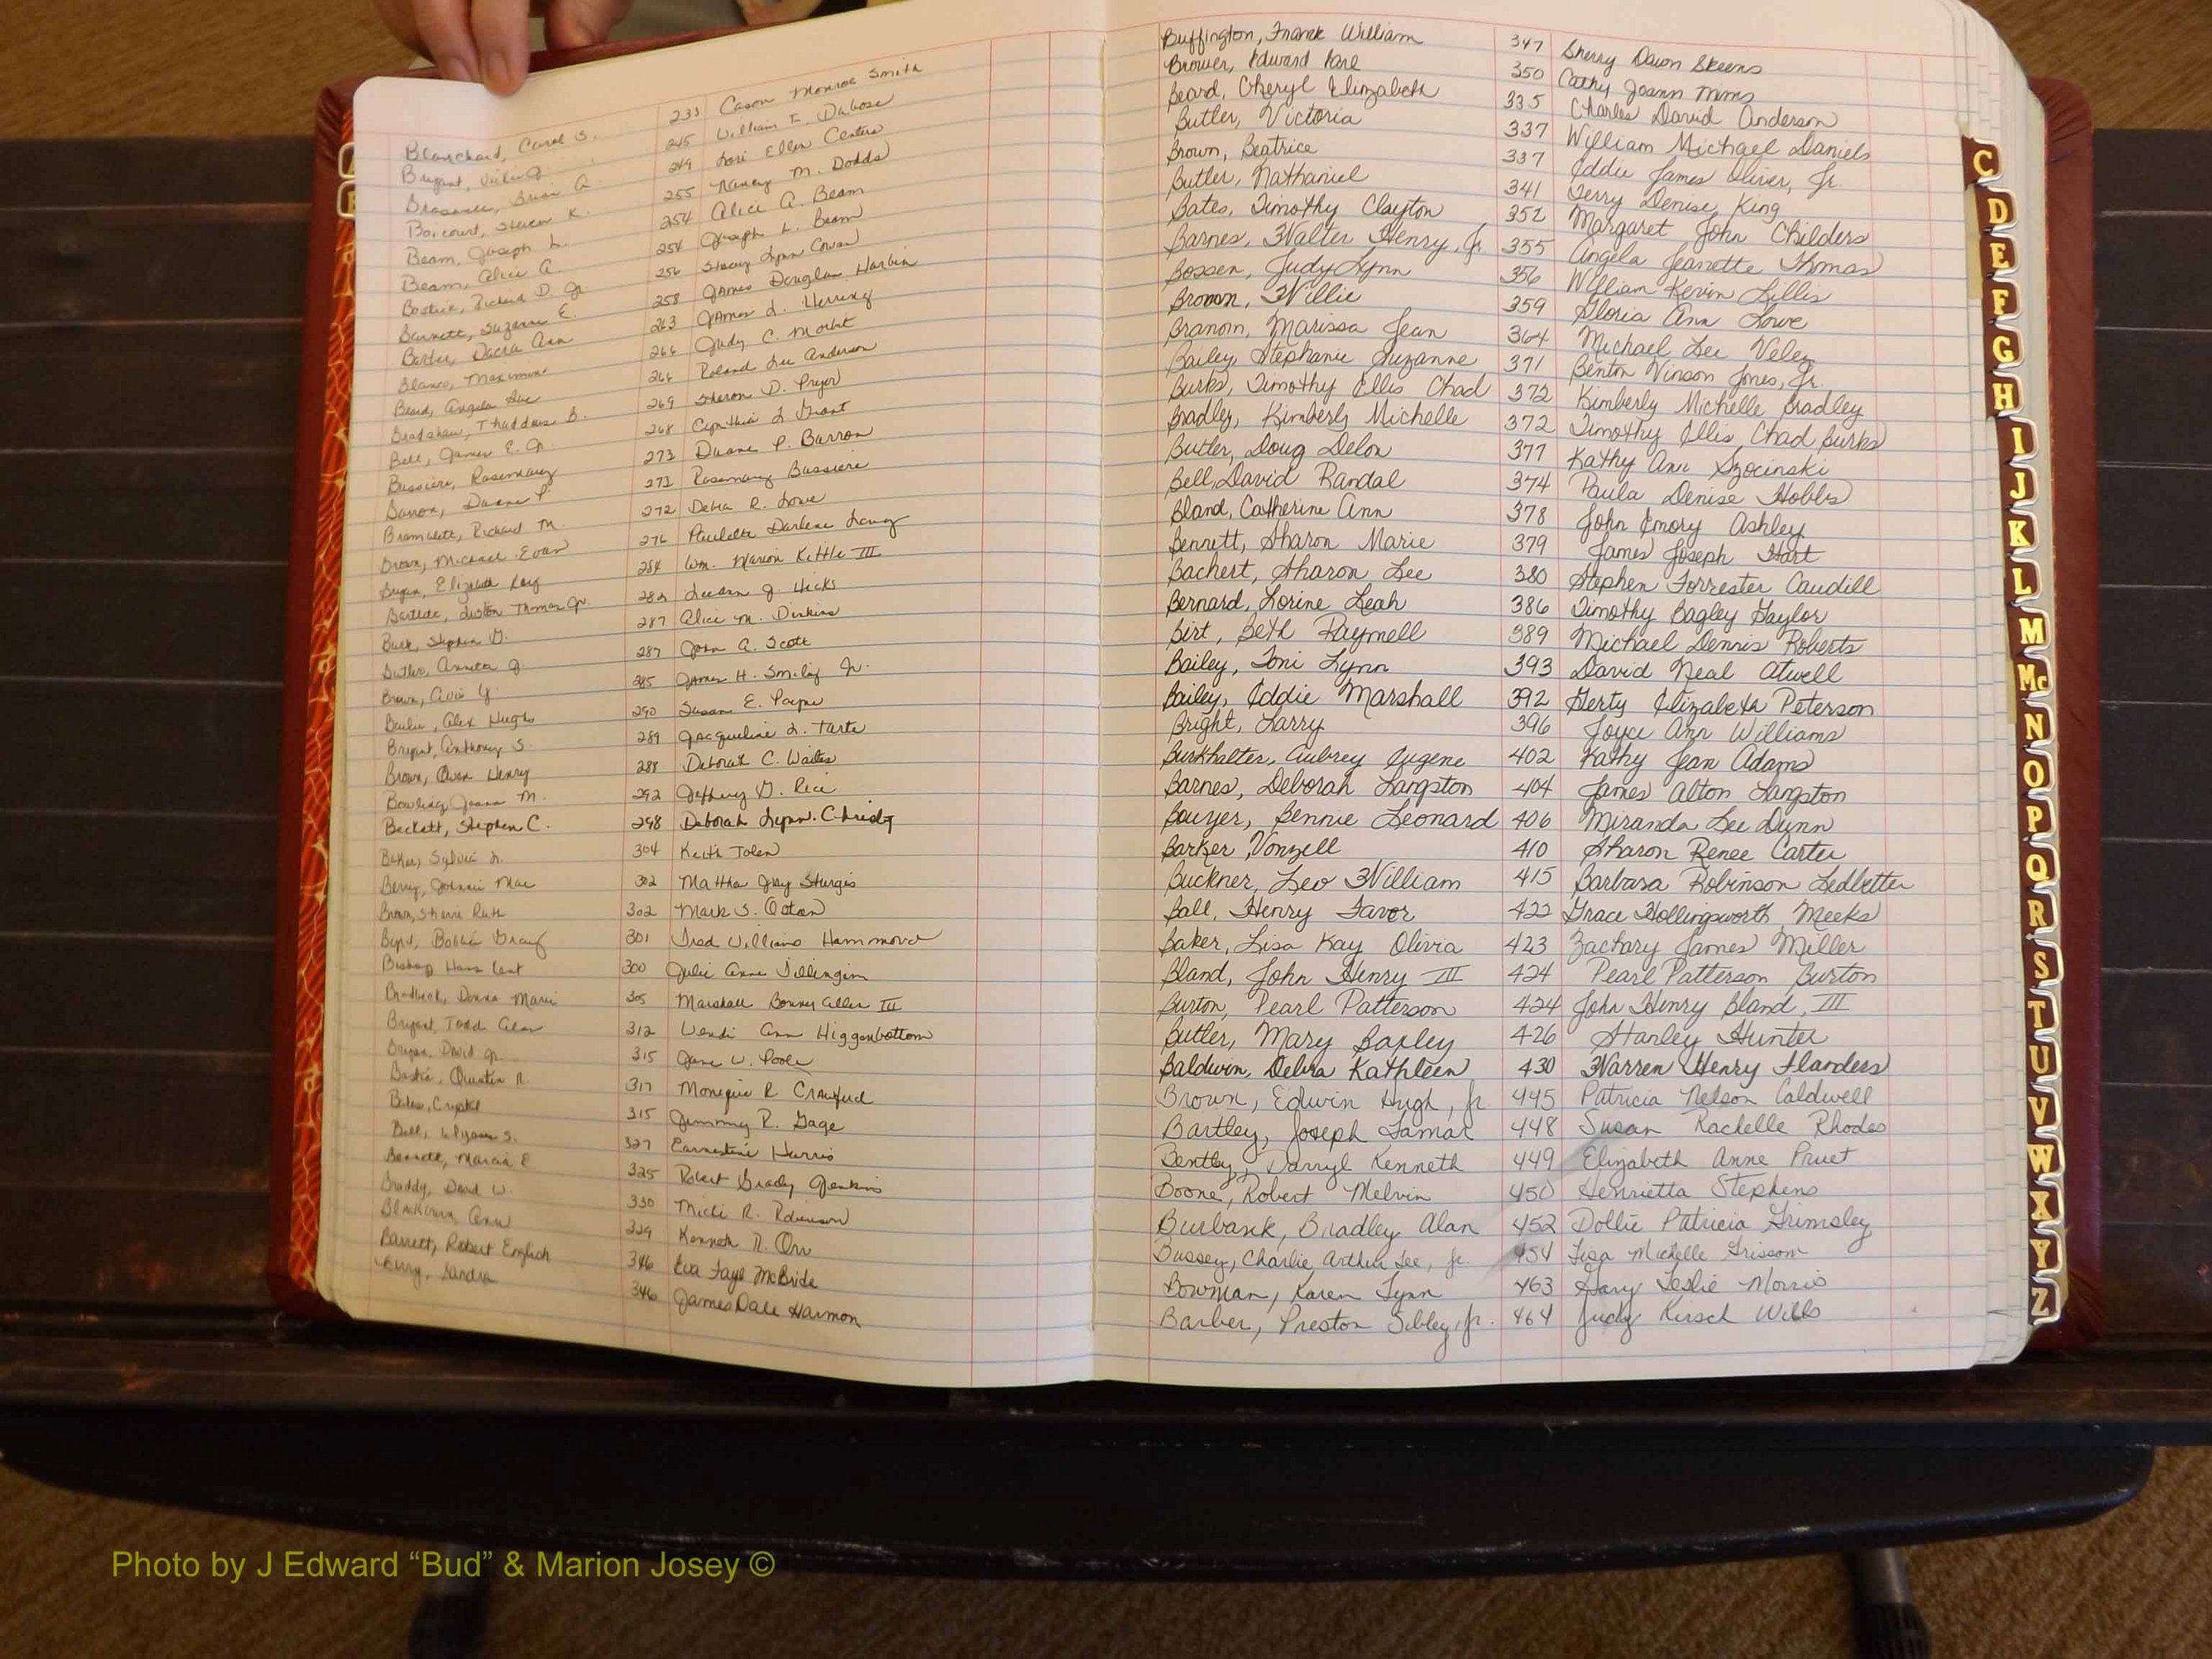 Blanchard, Carol S. 233 Cason Monroe Smith
Bryant, Vicki J. 245 William F. Dubose
Brian A. 249 Lori Ellen Centers
Steven K. 255 Nancy M. Dodds
Beam, Joseph L. 254 Alice A. Beam
Beam, Alice A. 254 Joseph L. Beam
Bostick, Richard D. Jr. 256 Stacey Lynn Cowan
Barnett, Suzanne E. 258 James Douglas Harbin
Barber, Dacra Ann 263 James L. Herring
Blanco, 266 Judy C. Morbit
Beard, Angela Sue 266 Roland Lee Anderson
Bradshaw, Thaddeus B. 269 Sharon D. Pryor
Bell, James E. Jr. 268 Cynthia L. Grant
Bussiere, Rosemary 273 Duane P. Barron
Barron, Duane P. 273 Rosemary Bussiere
Bramblett, Richard M. 272 Debra R. Lowe
Brown, Michael Evan 276 Paulette Darlene Long
Bryan, Elizabeth Kay 284 Wm. Marion Kittle III
Bartlett, Liston Thomas Jr. 282 Leean J. Hicks
Buck, Stephen G. 287 Alice M. Dinkins
Butler, Annita J. 287 John A. Scott
Brown, Avis Y. 285 James H. Smiley Jr.
Alex Hugh 290 Susan E. Payne
Bryant, Anthony S. 289 Jacqueline L. Tarte
Brown, Owen Henry 288 Deborah C. Waites
Bowling, Joann M. 292 Jeffrey G. Rice
Beckett, Stephen C. 298 Deborah Lynn Christy
Baker, Sylvia 304 Keith Tolen
Berry, Johnnie Mae 302 Martha Joy Sturgis
Brown, Sherri Ruth 302 Mark S.
Byrd, Bobbie 301 Fred Williams Hammond
Bishop Hans Kent 300 Julie Anne Dillingim
Donna Marie 305 Marshall Bonny Allen III
Bryant, Todd Alan 312 Wendi Ann Higgenbottom
Bryan, David Jr. 315 Jane W. Poole
Quentin R. 317 Monique R Crawford
Crystal 315 Jimmy R. Gage
Bell, Ulysses S. 327 Earnestine Harris
Bennett, Marcia E 325 Robert Grady Jenkins
Braddy, David W. 330 Micki R. Robinson
Blackburn, Ann 329 Kenneth R. Orr
Barrett, Robert English 346 Eva Faye McBride
Berry, Sandra 346 James Dale Harmon
Buffington, Frank William 347 Sherry Dawn Skeens
Brower, Edward Earl 350 Cathy Joann Mims
Beard, Cheryl Elizabeth 335 Charles David Anderson
Butler, Victoria 337 William Michael Daniels
Brown, Beatrice 337 Eddie James Oliver, Jr.
Butler, Nathaniel 341 Terry Denise King
Bates, Timothy Clayton 352 Margaret John Childers
Barnes, Walter Henry, Jr 355 Angela Jeanette Thomas
Bossen, Judy Lynn 356 William Kevin Lillis
Brown, Willie 359 Gloria Ann Lowe
Branom, Marissa Jean 364 Michael Lee Velez
Bailey, Stephanie Suzanne 371 Benton Vinson Jones, Jr.
Burks, Timothy Ellis Chad 372 Kimberly Michelle Bradley
Bradley, Kimberly Michelle 372 Timothy Ellis Chad Burks
Butler, Doug Delon 377 Kathy Ann Szocinski
Bell, David Randal 374 Paula Denise Hobbs
Bland, Catherine Ann 378 John Emory Ashley
Bennett, Sharon Marie 379 James Joseph Hart
Bachert, Sharon Lee 380 Stephen Forrester Caudill
Bernard, Lorine Leah 386 Timothy Bagley Gaylor
Birt, Beth Raymell 389 Michael Dennis Roberts
Bailey, Toni Lynn 393 David Neal Atwell
Bailey, Eddie Marshall 392 Gerty Elizabeth Peterson
Bright, Larry 396 Joyce Ann Williams
Burkhalter, Aubrey Eugene 402 Kathy Jean Adams
Barnes, Deborah Langston 404 James Alton Langston
Bouyer, Bennie Leonard 406 Miranda Lee Dynn
Barker, Vonzell 410 Sharon Renee Carter
Buckner, Leo William 415 Barbara Robinson Ledbetter
Ball, Henry Favor 422 Grace Hollingsworth Meeks
Baker, Lisa Kay Olivia 423 Zachary James Miller
Bland, John Henry III 424 Pearl Patterson Burton
Burton, Pearl Patterson 424 John Henry Bland, III
Butler, Mary Bagley 426 Stanley Hunter
Baldwin, Debra Kathleen 430 Warren Henry Flanders
Brown, Edwin Hugh, Jr 445 Patricia Nelson Caldwell
Bartley, Joseph Lamar 448 Susan Rachelle Rhodes
Bentley, Darryl Kenneth 449 Elizabeth Anne Pruet
Boone, Robert Melvin 450 Henrietta Stephens
Burbank, Bradley Alan 452 Dollie Patricia Grimsley
Bussey, Charlie Arthur Lee, Jr. 454 Lisa Michelle Grissom
Bowman, Karen Lynn 463 Gary Leslie Morris
Barber, Preston Sibley, Jr. 464 Judy Kirsch Wills
C
D
E
F
G
H
I
J
K
L
M
Mc
N
O
P
Q
R
S
T
U
V
W
X
Y
Z
Photo by J Edward “Bud” & Marion Josey ©